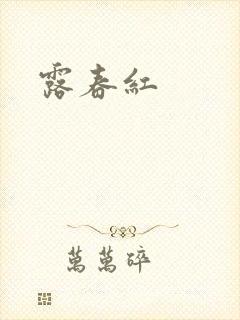 露春紅
萬萬碎